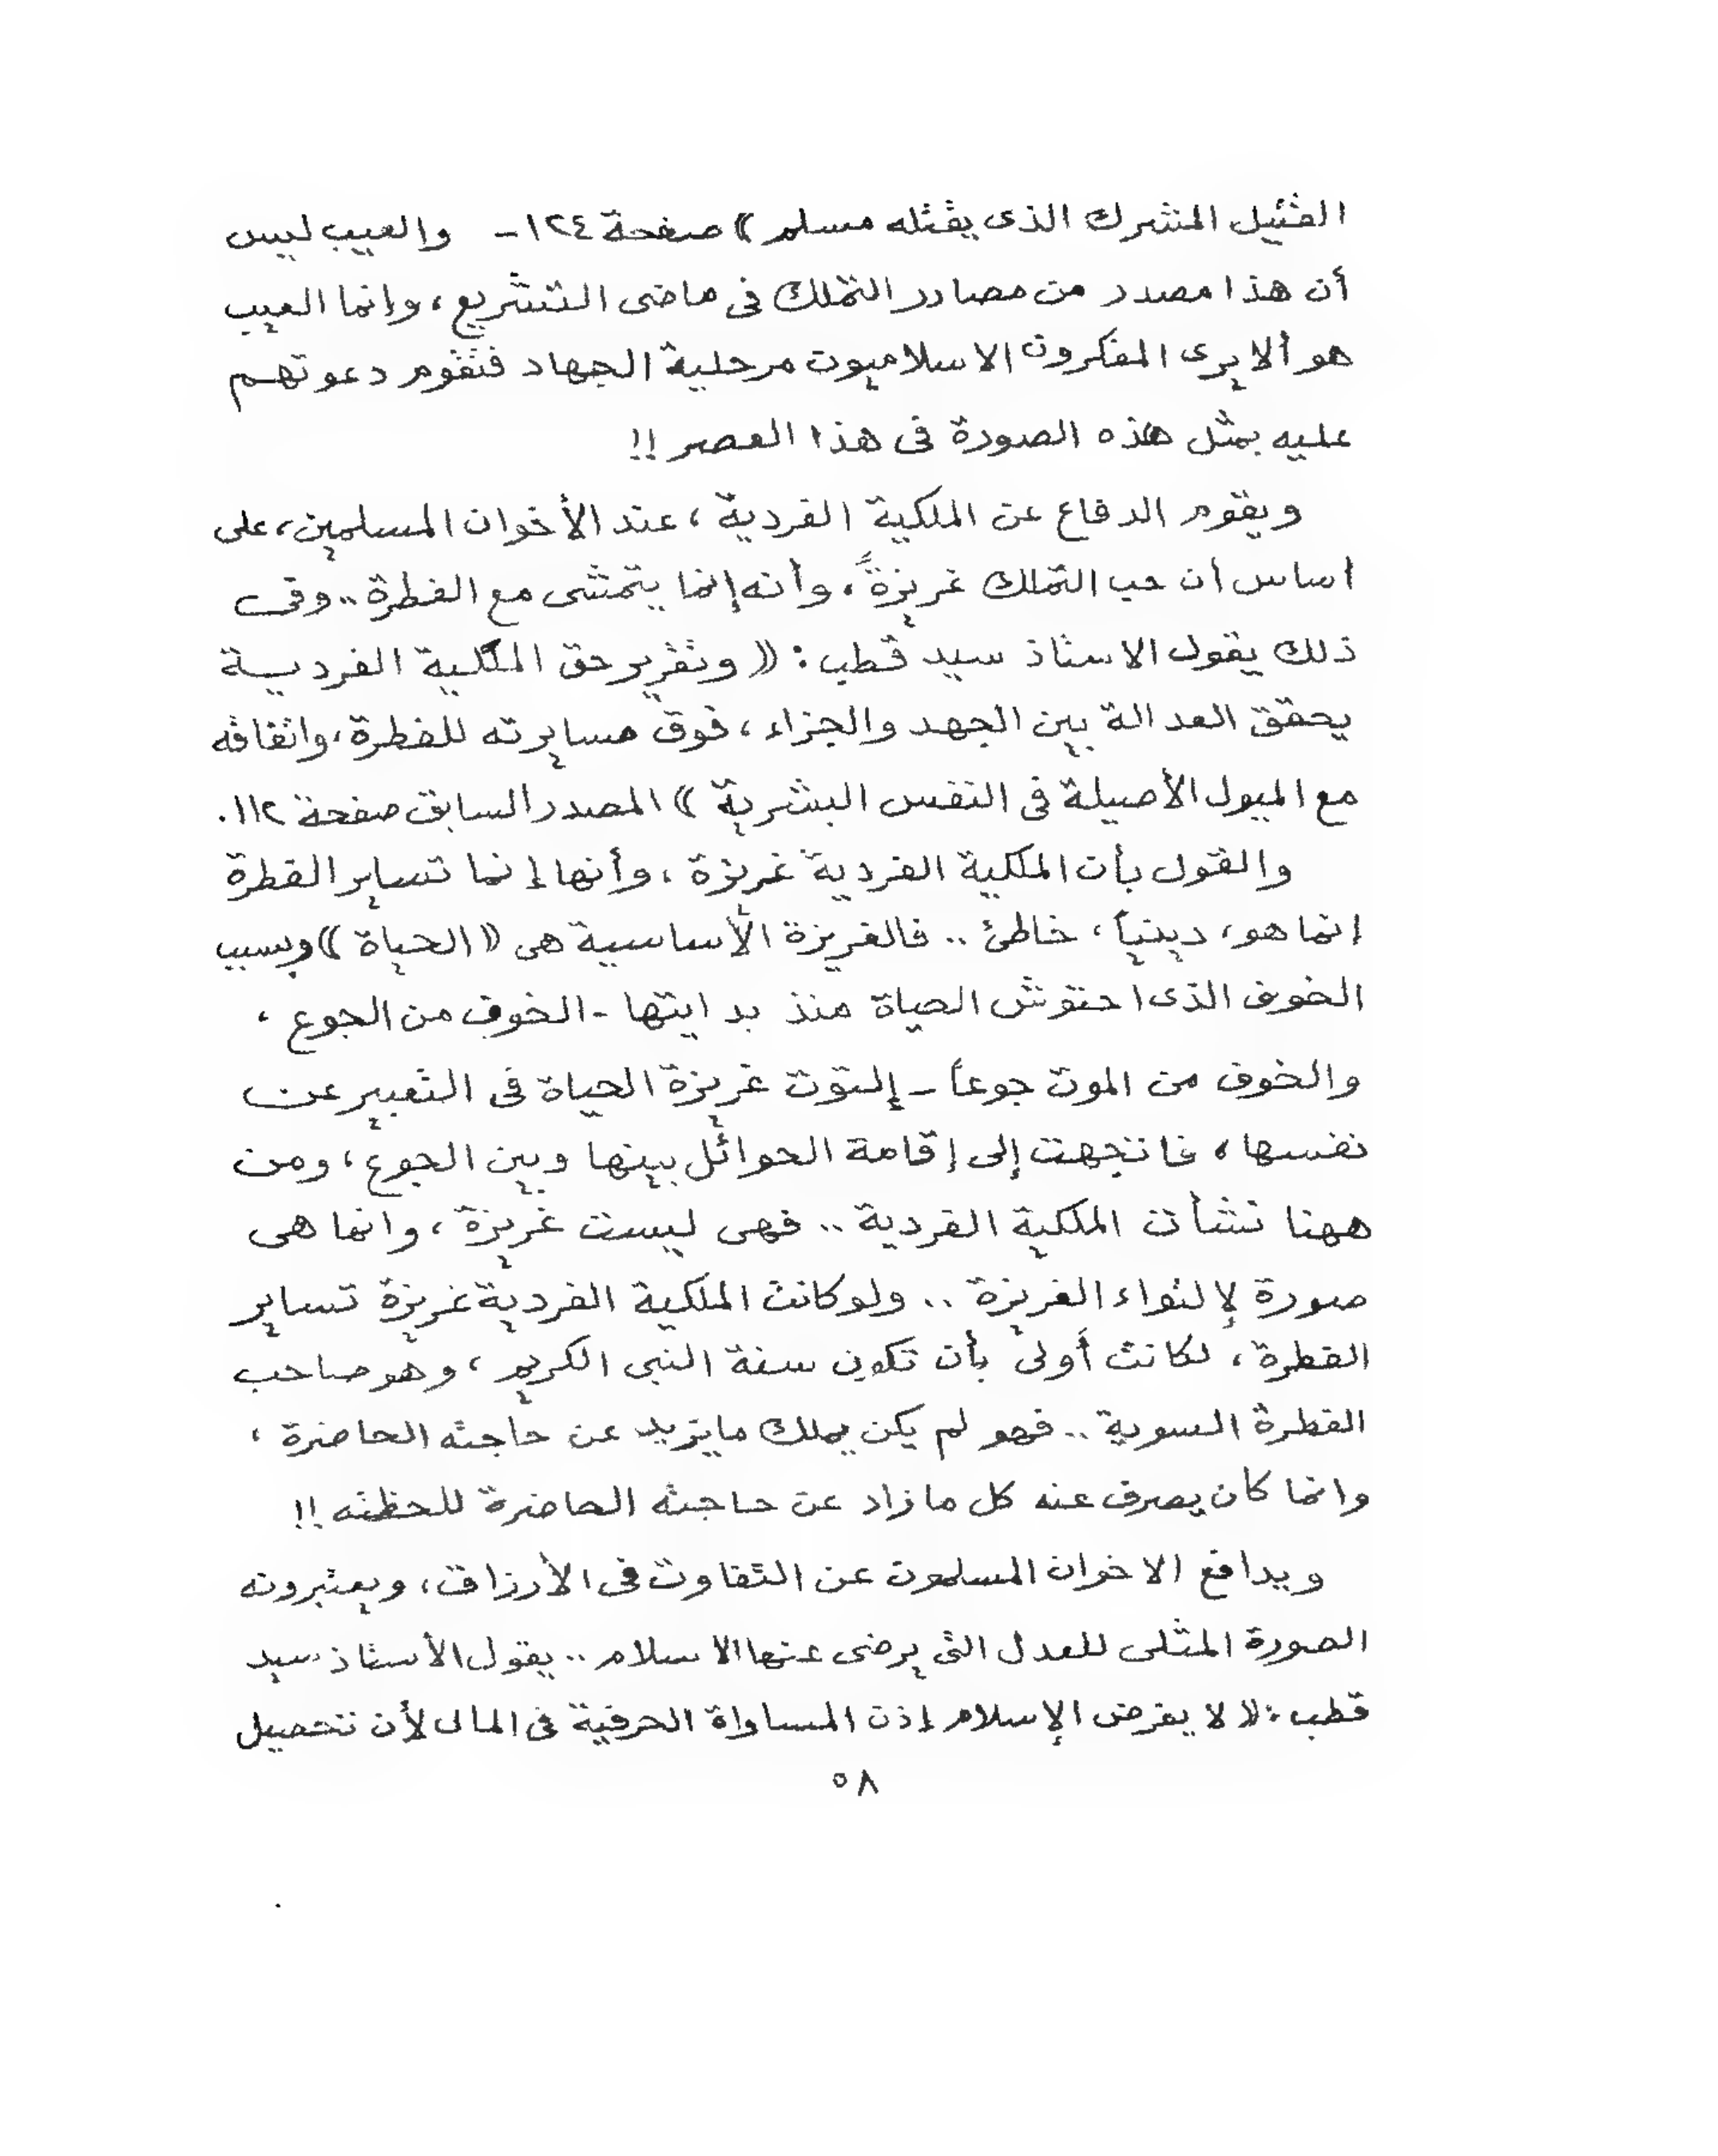 القتيل المشرك الذى يقتله مسلم )) صفحة ١٢٤ - والعيب ليس
أن هذا مصدر من مصادر التملك فى ماضى التشريع، وانما العيب
هو ألا يرى المفكرون الاسلاميون مرحلية الجهاد فتقوم دعوتهم
عليه بمثل هذه الصورة فى هذا العصر !!
ويقوم الدفاع عن الملكية الفردية، عند الأخوان المسلمين، على
اساس ان حب التملك غريزةً، وأنه إنما يتمشى مع الفطرة .. وفى
ذلك يقول الاستاذ سيد قطب : (( وتقرير حق الملكية الفردية
يحقق العدالة بين الجهد والجزاء، فوق مسايرته للفطرة، واتفاقه
مع الميول الأصيلة فى النفس البشرية )) المصدر السابق صفحة ١١٢.
والقول بأن الملكية الفردية غريزة، وأنها إنما تساير الفطرة
إنما هو، دينياً، خاطئ .. فالغريزة الأساسية هى (( الحياة )) وبسبب
الخوف الذى احتوش الحياة منذ بدايتها - الخوف من الجوع،
والخوف من الموت جوعاً - إلتوت غريزة الحياة فى التعبير عن
نفسها، فاتجهت إلى إقامة الحوائل بينها وبين الجوع، ومن
ههنا نشأت الملكية الفردية .. فهى ليست غريزة، وانما هى
صورة لإلتواء الغريزة .. ولو كانت الملكية الفردية غريزة تساير
الفطرة، لكانت أَولى بأن تكون سنة النبى الكريم، وهو صاحب
الفطرة السوية .. فهو لم يكن يملك مايزيد عن حاجته الحاضرة،
وانما كان يصرف عنه كل ما زاد عن حاجته الحاضرة للحظته !!
ويدافع الاخوان المسلمون عن التفاوت فى الأرزاق، ويعتبرونه
الصورة المثلى للعدل التى يرضى عنها الاسلام .. يقول الأستاذ سيد
قطب : (( لا يفرض الإسلام إذن المساواة الحرفية فى المال لأن تحصيل
٥٨